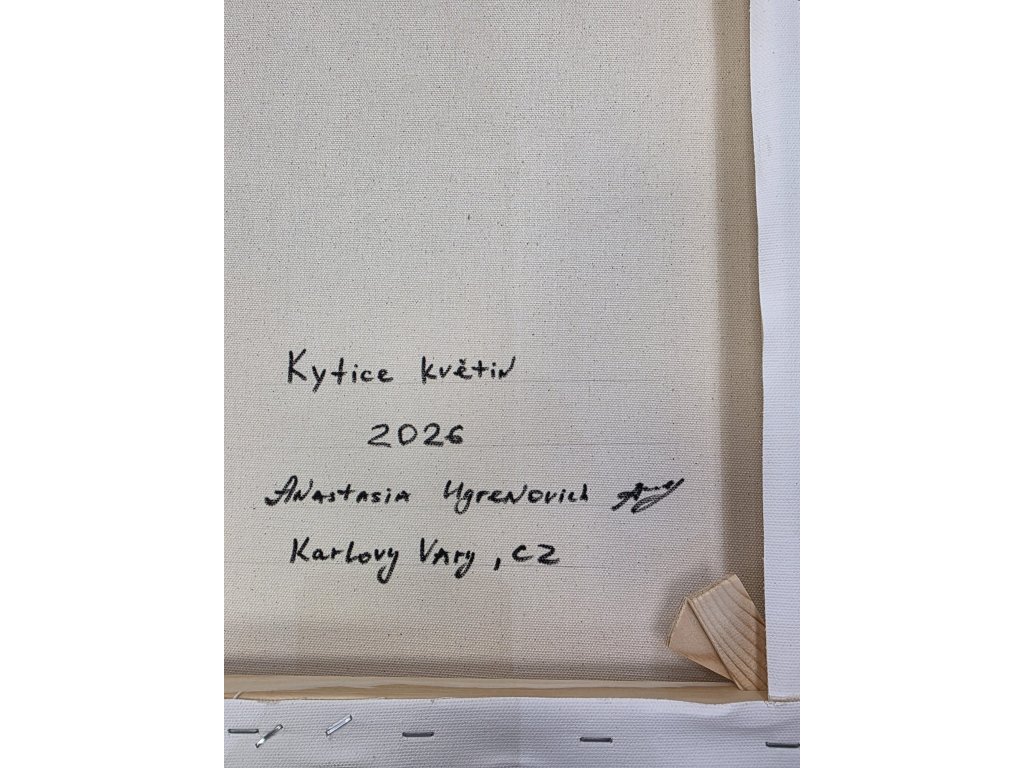 Kytice květin
2026
Anastasia Ugrenovich
Karlovy Vary, CZ